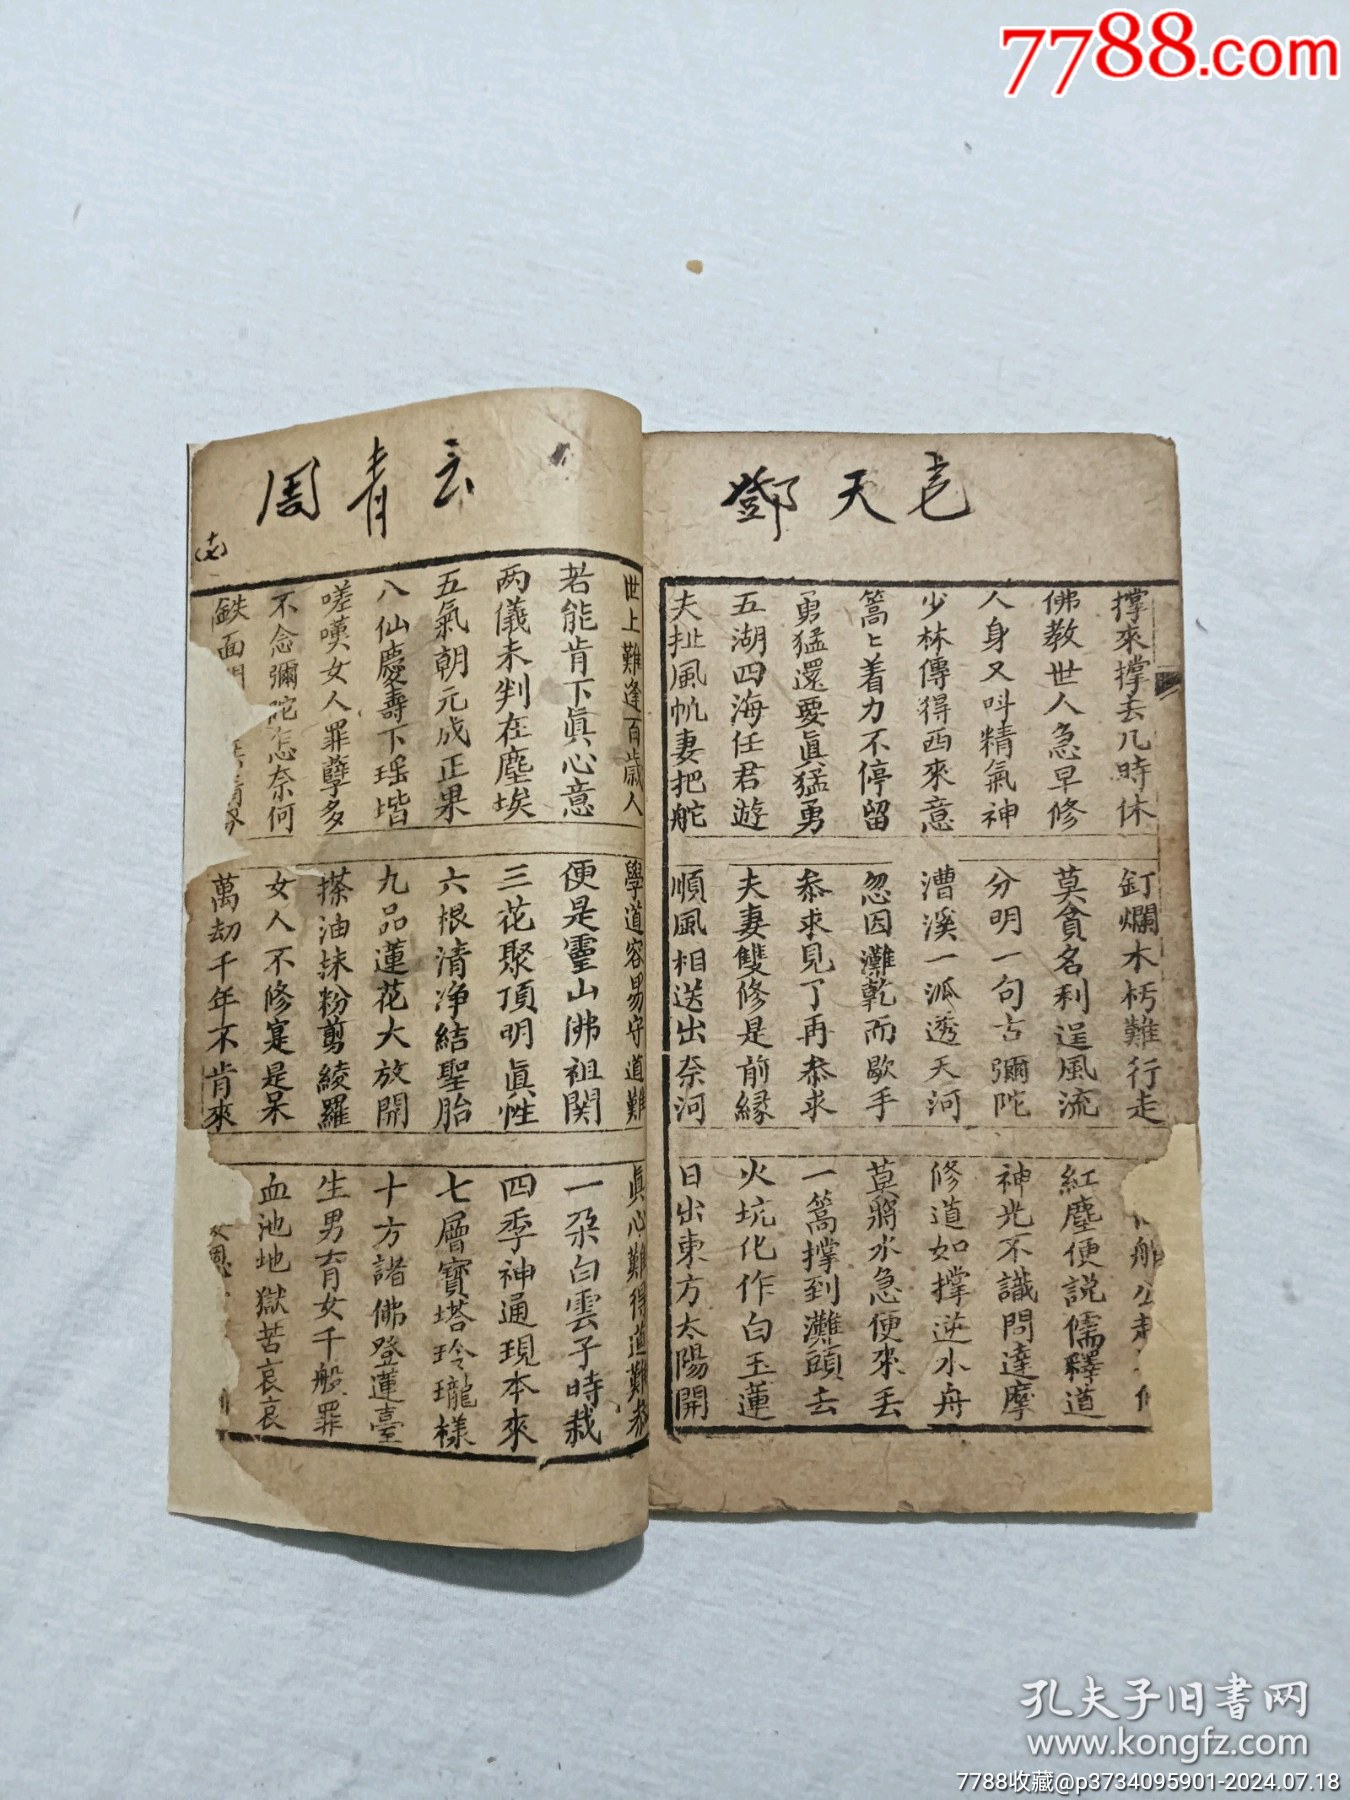 7788.com
鄧天
撑來撑去几時休 釘爛木朽難行走
佛教世人急早修 莫貪名利逞風流 紅塵便説儒釋道
人身又呌精氣神 分明一句古彌陀 神光不識問達摩
少林傳得西來意 漕溪一派透天河 修道如撑逆水舟
篙〻着力不停留 忽因灘乾而歇手 莫將水急便來丢
勇猛還要眞猛勇 叅求見了再叅求 一篙撑到灘頭去
五湖四海任君遊 夫妻雙修是前縁 火坑化作白玉蓮
夫扯風帆妻把舵 順風相送出奈河 日出東方太陽開
周青云
世上難逢百歲人 學道容易守道難 眞心難得道難叅
若能肯下眞心意 便是靈山佛祖関 一朶白雲子時栽
两儀未判在塵埃 三花聚頂明眞性 四季神通現本來
五氣朝元成正果 六根清净結聖胎 七層寶塔玲瓏樣
八仙慶壽下瑶堦 九品蓮花大放開 十方諸佛登蓮臺
嗟嘆女人罪孽多 搽油抹粉剪綾羅 生男育女千般罪
不念彌陀怎奈何 女人不修寔是呆 血池地獄苦哀哀
鉄面 萬劫千年不肯來
孔夫子旧書网
www.kongfz.com
7788收藏@p3734095901-2024.07.18